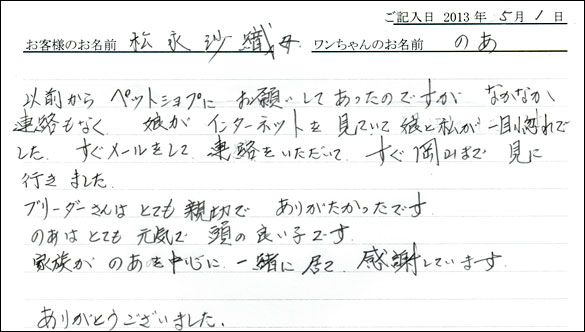 ご記入日 2013年 5月 1日
お客様のお名前 松永沙織母 ワンちゃんのお名前 のあ
以前から ペットショプに お願いしてあったのですが なかなか
連絡もなく 娘が インターネットを 見ていて 娘と私が 一目惚れで
した。すぐメールをして 連絡をいただいて すぐ岡山まで 見に
行きました。
ブリーダーさんは とても 親切で ありがたかったです
のあは とても 元気で 頭の良い子です
家族が のあを中心に 一緒に 居て 感謝しています
ありがとうございました。